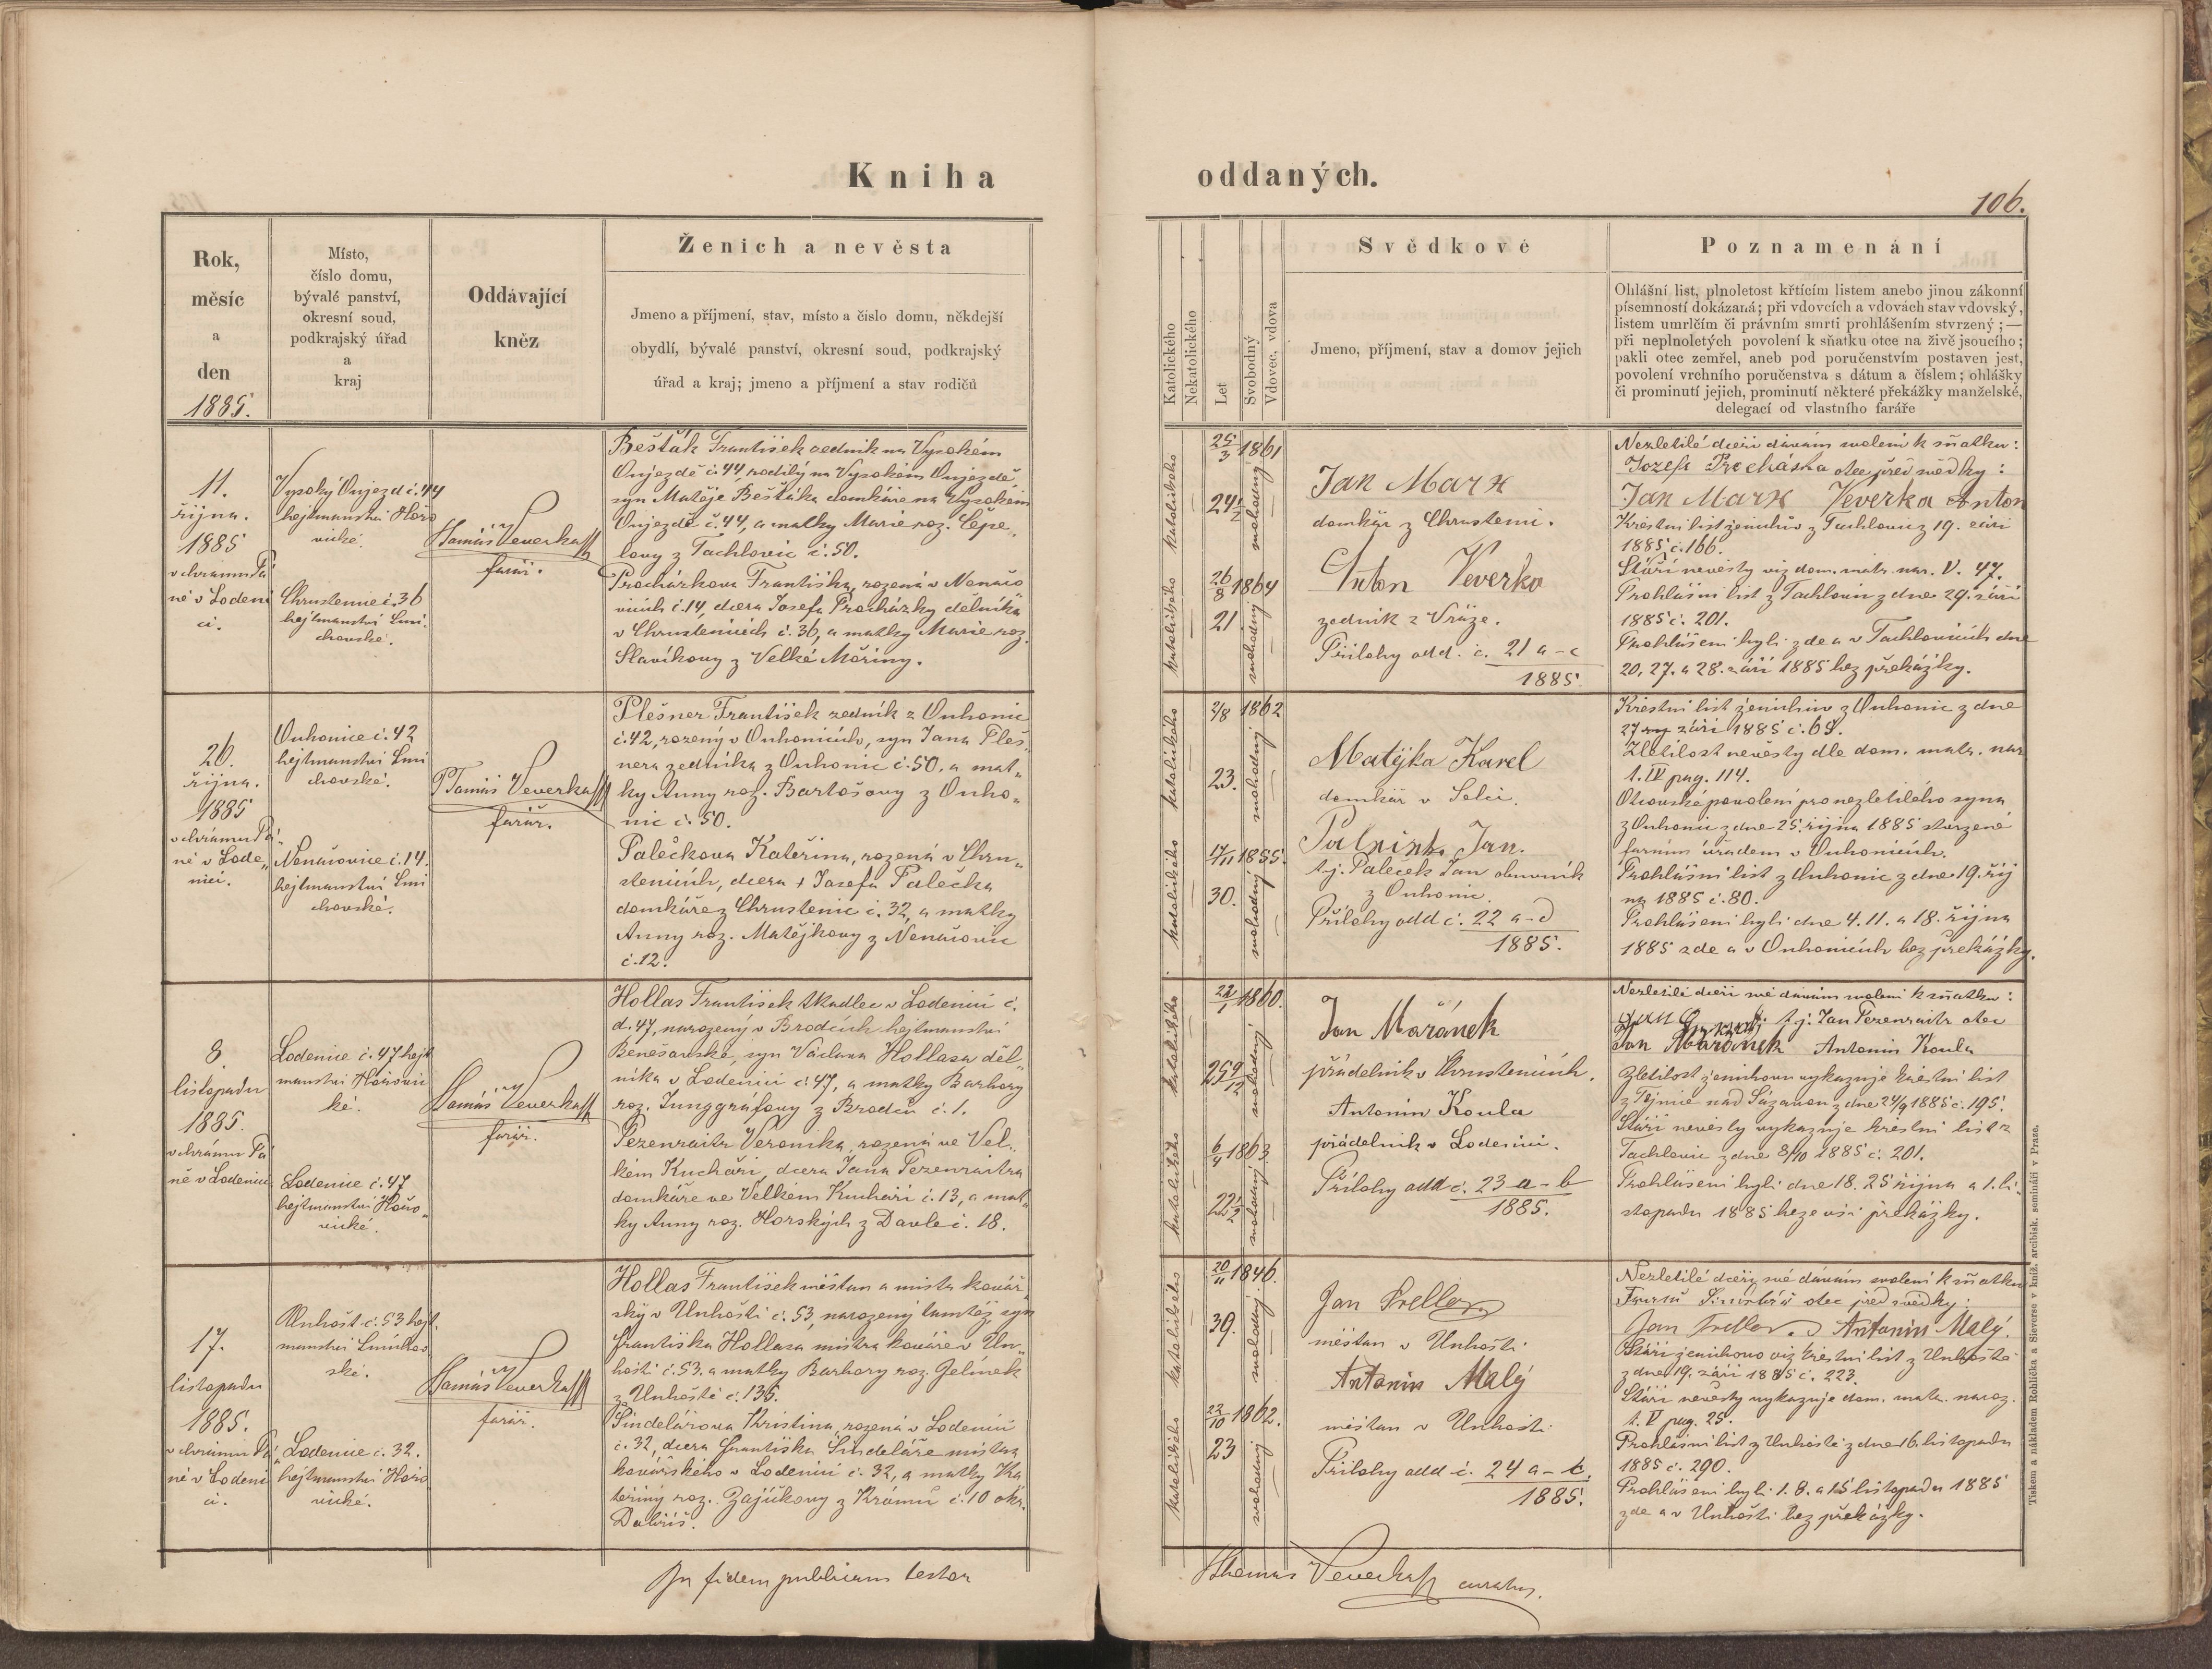 Kniha oddaných.
106.
Rok,
měsíc
a
den
1885.
Místo,
číslo domu,
bývalé panství,
okresní soud,
podkrajský úřad
a
kraj
Oddávající
kněz
Ženich a nevěsta
Jmeno a příjmení, stav, místo a číslo domu, někdejší
obydlí, bývalé panství, okresní soud, podkrajský
úřad a kraj; jmeno a příjmení a stav rodičů
Katolického
Nekatolického
Let
Svobodný
Vdovec, vdova
Svědkové
Jmeno, příjmení, stav a domov jejich
Poznamenání
Ohlášní list, plnoletost křtícím listem anebo jinou zákonní
písemností dokázaná; při vdovcích a vdovách stav vdovský,
listem umrlčím či právním smrti prohlášením stvrzený; —
při neplnoletých povolení k sňatku otce na živě jsoucího;
pakli otec zemřel, aneb pod poručenstvím postaven jest,
povolení vrchního poručenstva s dátum a číslem; ohlášky
či prominutí jejich, prominutí některé překážky manželské,
delegací od vlastního faráře
11.
října.
1885
v chrámu Pá
ně v Loděni
ci.
Vysoký Oujezd č. 44
hejtmanství Hořo
vické.
Chrustenice č. 36
hejtmanství Smi
chovské.
Tomáš Veverka
farář.
Bešťák František zedník na Vysokém
Oujezdě č. 44, rodilý na Vysokém Oujezdě,
syn Matěje Bešťáka domkáře na Vysokém
Oujezdě č. 44, a matky Marie roz. Čepe„
lovy z Tachlovic č. 50.
Procházkova Františka, rozená v Nenačo
vicích č. 14, dcera Josefa Procházky dělníka
v Chrustenicích č. 36, a matky Marie roz.
Slavíkovy z Velké Mořiny.
katolického
25/3 1861
24 1/2
svobodný
katolického
26/8 1864
21.
svobodný
Jan Marx
domkář z Chrustenic.
Anton Veverka
zedník z Vráže.
Přílohy odd. č. 21 a-c
1885.
Nezletilé dceři dávám svolení k sňatku:
Jozefa Procháska otec před svědky:
Jan Marx Veverka Anton
Křestní list ženichův z Tachlovic z 19. září
1885 č. 166.
Stáří nevěsty viz dom. matr. nar. V. 47.
Prohlášní list z Tachlovic z dne 29. září
1885 č. 201.
Prohlášeni byli zde a v Tachlovicích dne
20, 27. a 28. září 1885 bez překážky.
26.
října.
1885
v chrámu Pá„
ně v Lode„
nici.
Ouhonice č. 42
hejtmanství Smi
chovské.
Nenačovice č. 14.
hejtmanství Smi
chovské.
P Tomáš Veverka
farář.
Plešner František zedník z Ouhonic
č. 42, rozený v Ouhonicích, syn Jana Pleš„
nera zedníka z Ouhonic č. 50, a mat„
ky Anny roz. Bartošovy z Ouho„
nic č. 50.
Palečkova Kateřina, rozená v Chru„
stenicích, dcera + Josefa Palečka
domkáře z Chrustenic č. 32, a matky
Anny roz. Matějkovy z Nenačovic
č. 12.
katolického
2/8 1862
23.
svobodný
katolického
17/11 1855.
30.
svobodný
Matějka Karel
domkář v Selci.
Jan.
t. j. Paleček Jan obuvník
z Ouhonic.
Přílohy odd č. 22 a-d
1885.
Křestní list ženichův z Ouhonic z dne
27 září 1885 č. 69.
Zletilost nevěsty dle dom. matr. nar
t. IV pag. 114.
Otcovské povolení pro nezletilého syna
z Ouhonic z dne 25. října 1885 stvrzené
farním úřadem v Ouhonicích.
Prohlášní list z Ouhonic z dne 19. říj
na 1885 č. 80.
Prohlášeni byli dne 4. 11. a 18. října
1885 zde a v Ouhonicích bez překážky.
8.
listopadu
1885.
v chrámu Pá
ně v Lodenici
Lodenice č. 47 hejt
manství Hořovic
ké.
Lodenice č. 47
hejtmanství Hořo„
vické.
Tomáš Veverka
farář.
Hollas František tkadlec v Lodenici č.
d. 47, narozený v Brodcích hejtmanství
Benešovské, syn Václava Hollasa děl„
níka v Lodenici č. 47, a matky Barbory
roz. Junggráfovy z Brodců č. 1.
Pezenraitr Veronika, rozená ve Vel„
kém Kuchaři, dcera Jana Pezenraitra
domkáře ve Velkém Kuchaři č. 13, a mat„
ky Anny roz. Horských z Davle č. 18.
katolického
1860.
25 9/12
svobodný
katolického
6/4 1863.
22 1/2
svobodný
Jan Mařánek
přádelník v Chrustenicích.
Antonín Koula
přádelník v Lodenici.
Přílohy odd č. 23 a-b
1885.
Nezletilé dceři své dávám svolení k sňatku:
t. j. Jan Pezenraitr otec
Jan Mařánek Antonín Koula
Zletilost ženichovu vykazuje křestní list
z Týnice nad Sázavou z dne 24/9 1885 č. 195.
Stáří nevěsty vykazuje křestní list z
Tachlovic z dne 8/10 1885 č. 201.
Prohlášeni byli dne 18. 25 října a 1. li„
stopadu 1885 beze vší překážky.
17.
listopadu
1885.
v chrámu Pá„
ně v Lodeni
ci.
Unhošť č. 53 hejt.
manství Smíchov
ské.
Lodenice č. 32.
hejtmanství Hořo
vické.
Tomáš Veverka
farář.
Hollas František měšťan a mistr kovář„
ský v Unhošti č. 53, narozený tamtéž, syn
Františka Hollasa mistra kováře v Un„
hošti č. 53. a matky Barbory roz. Jelínek
z Unhoště č. 136.
Šindelářova Kristina, rozená v Lodenici
č. 32, dcera Františka Šindeláře mistra
kovářského v Lodenici č. 32, a matky Ka
teřiny roz. Zajíčkovy z Krámů č. 10 okr.
Dobříš.
katolického
20/11 1846.
39.
svobodný.
katolického
23/10 1862.
23
svobodný
Jan
měšťan v Unhošti
Antonín Malý
měšťan v Unhošti
Přílohy odd č. 24 a-c.
1885.
Nezletilé dceři své dávám svolení k sňatku
otec před svědky:
Jan Antonín Malý.
Stáří ženichovo viz křestní list z Unhoště
z dne 19. září 1885 č. 223.
Stáří nevěsty vykazuje dom. matr. naroz.
t. V pag. 25.
Prohlášní list z Unhoště z dne 16. listopadu
1885 č. 290.
Prohlášeni byli 1. 8. a 15 listopadu 1885
zde a v Unhošti bez překážky.
In fidem publicam testor
Thomas Veverka curatus.
Tiskem a nákladem Rohlíčka a Sieverse v kniž. arcibisk. semináři v Praze.